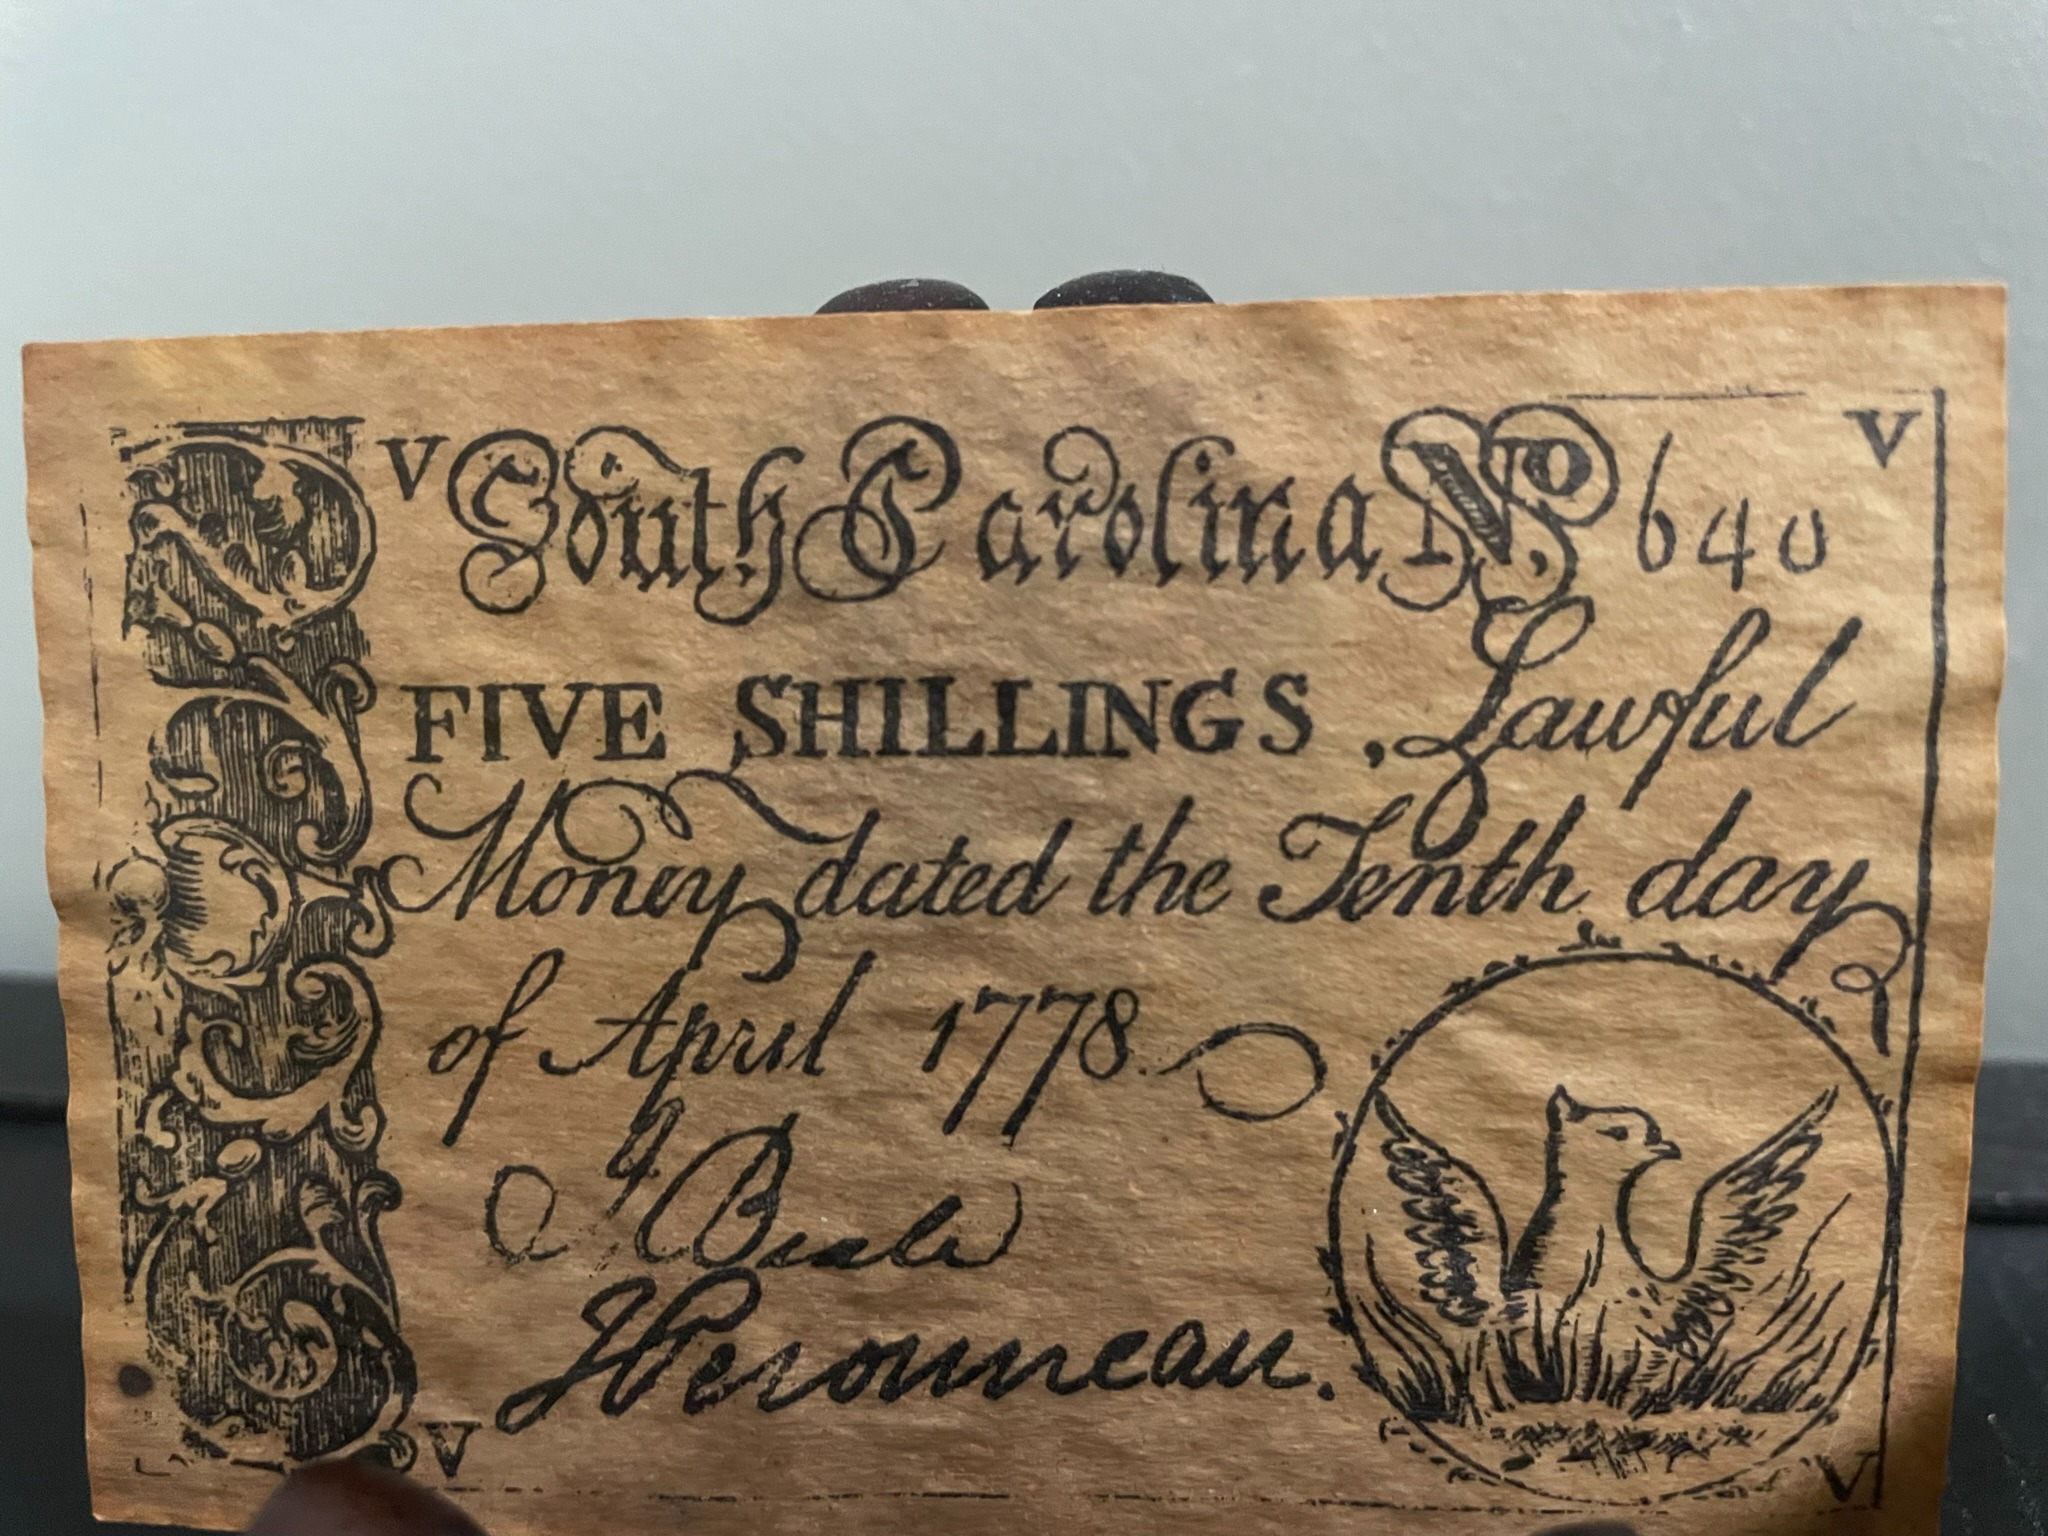 V South Carolina No. 640 V
FIVE SHILLINGS, Lawful
Money dated the Tenth day
of April 1778.
J Beale
H Peronneau.
V V